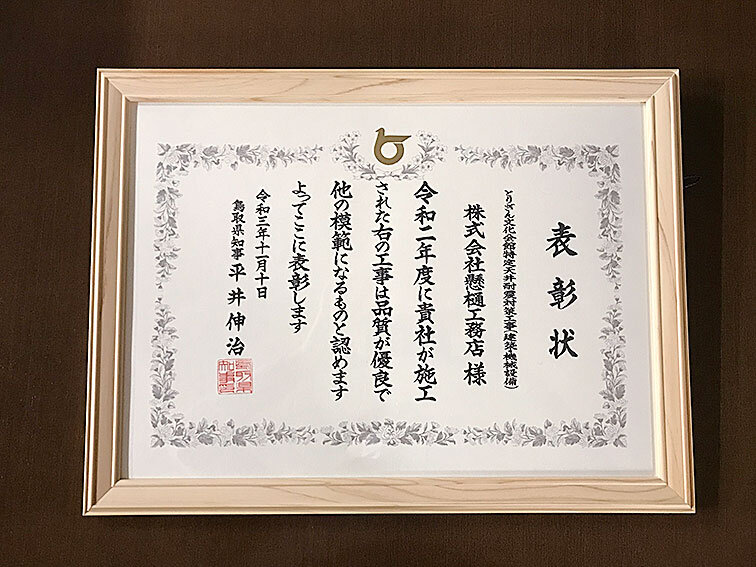 表彰状
とりぎん文化会館特定天井耐震対策工事(建築・機械設備)
株式会社懸樋工務店 様
令和二年度に貴社が施工
された右の工事は品質が優良で
他の模範になるものと認めます
よってここに表彰します
令和三年十一月十日
鳥取県知事 平井伸治